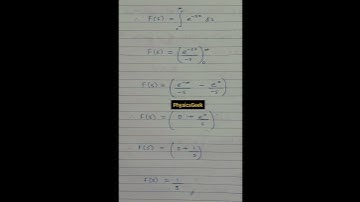 F(s) = ∫₀^∞ e^{-st} dt
F(s) = (e^{-st}/-s)₀^∞
F(s) = (e^{-∞}/-s - e^{0}/-s)
PhysicsGeek
F(s) = (0 + e^{0}/s)
F(s) = (0 + 1/s)
F(s) = 1/s